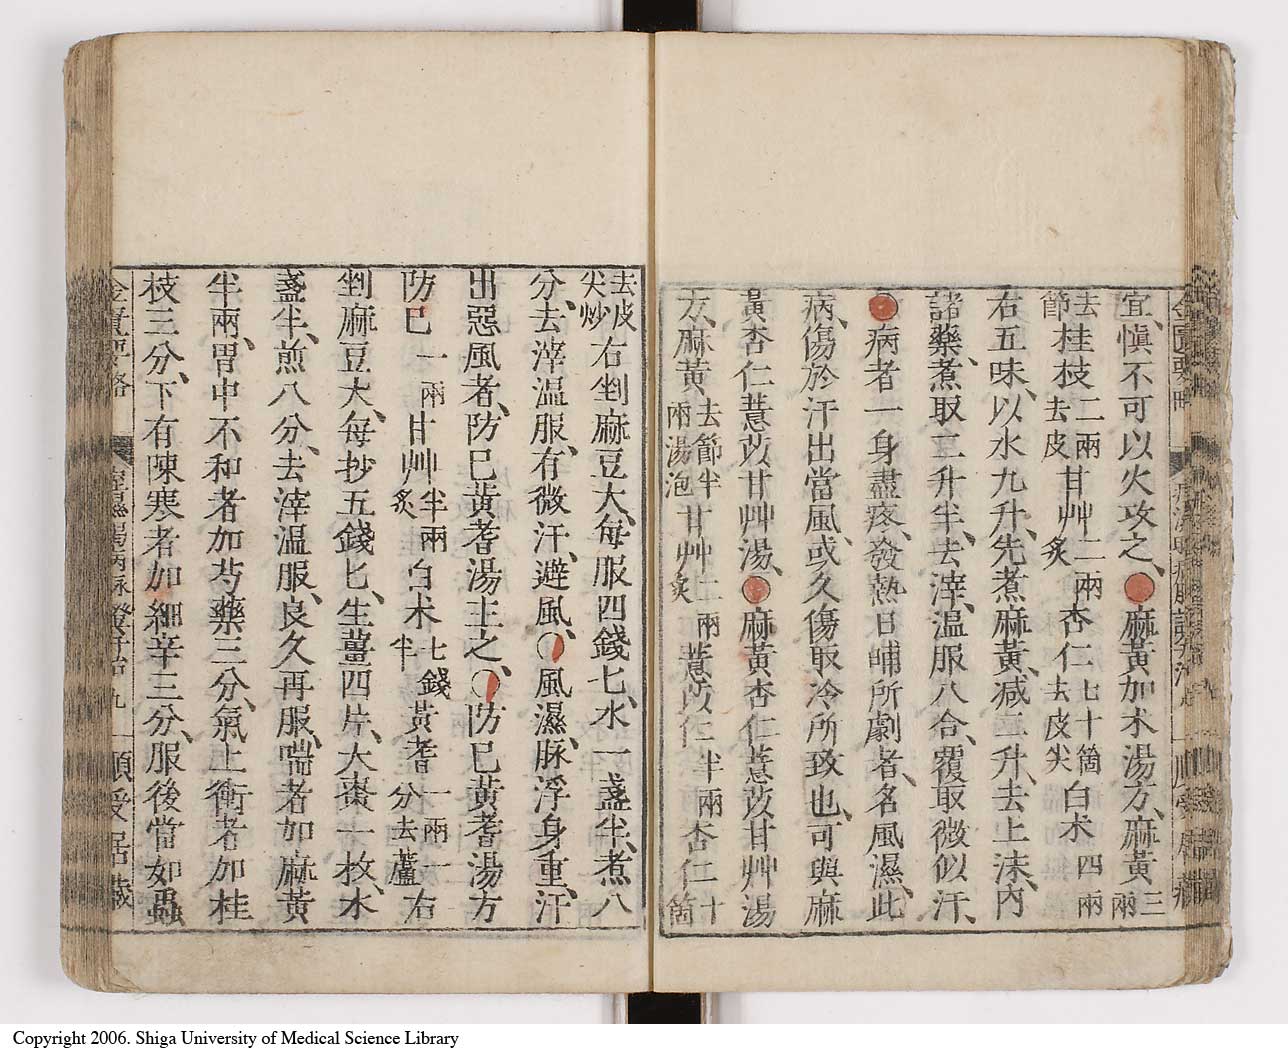 宜、愼不可以火攻之、麻黃加朮湯方、麻黃三兩
去節桂枝二兩去皮甘艸二兩炙杏仁七十箇去皮尖白朮四兩
右五味、以水九升、先煮麻黃、减二升、去上沫、內
諸藥、煮取二升半、去滓、溫服八合、覆取微似汗、
病者一身盡疼、發熱日晡所劇者、名風濕、此
病、傷於汗出當風、或久傷取冷所致也、可與麻
黃杏仁薏苡甘艸湯、麻黃杏仁薏苡甘艸湯
方、麻黃去節半兩湯泡甘艸一兩炙薏苡仁半兩杏仁十箇
去皮尖炒右剉麻豆大、每服四錢匕、水一盞半、煮八
分、去滓、溫服、有微汗、避風、風濕、脉浮身重、汗
出惡風者、防巳黃耆湯主之、防巳黃耆湯方
防巳一兩甘艸半兩炙白朮七錢半黃耆一兩一分去蘆右
剉麻豆大、每抄五錢匕、生薑四片、大棗一枚、水
盞半、煎八分、去滓溫服、良久再服、喘者加麻黃
半兩、胃中不和者加芍藥三分、氣上衝者加桂
枝三分、下有陳寒者加細辛三分、服後當如蟲
Copyright 2006. Shiga University of Medical Science Library